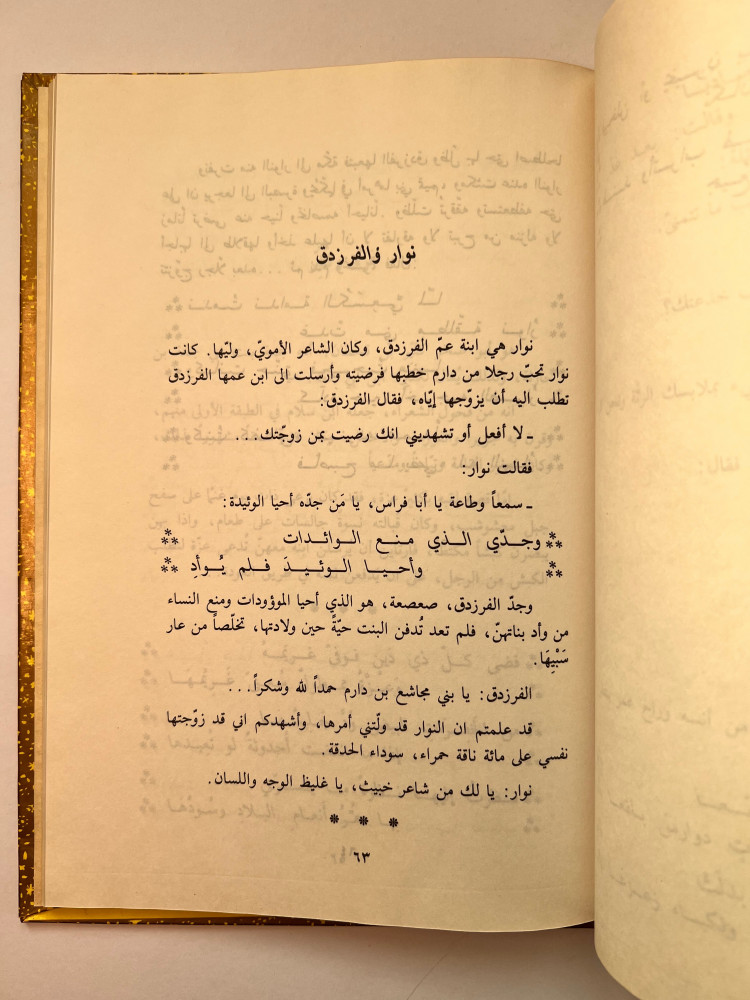 نوار والفرزدق
نوار هي ابنة عمّ الفرزدق، وكان الشاعر الأمويّ، وليّها. كانت
نوار تحبّ رجلا من دارم خطبها فرضيته وأرسلت الى ابن عمها الفرزدق
تطلب اليه أن يزوّجها إيّاه، فقال الفرزدق:
ـ لا أفعل أو تشهديني انك رضيت بمن زوجّتك...
فقالت نوار:
ـ سمعاً وطاعة يا أبا فراس، يا مَن جدّه أحيا الوئيدة:
⁂ وجدّي الذي منع الوائدات
⁂ وأحيا الوئيدَ فلم يُوأدِ ⁂
وجدّ الفرزدق، صعصعة، هو الذي أحيا الموؤودات ومنع النساء
من وأد بناتهنّ، فلم تعد تُدفن البنت حيّةً حين ولادتها، تخلّصاً من عار
سَبْيِهَا.
الفرزدق: يا بني مجاشع بن دارم حمداً لله وشكراً...
قد علمتم ان النوار قد ولّتني أمرها، وأشهدكم اني قد زوّجتها
نفسي على مائة ناقة حمراء، سوداء الحدقة.
نوار: يا لك من شاعر خبيث، يا غليظ الوجه واللسان.
* * *
٦٣